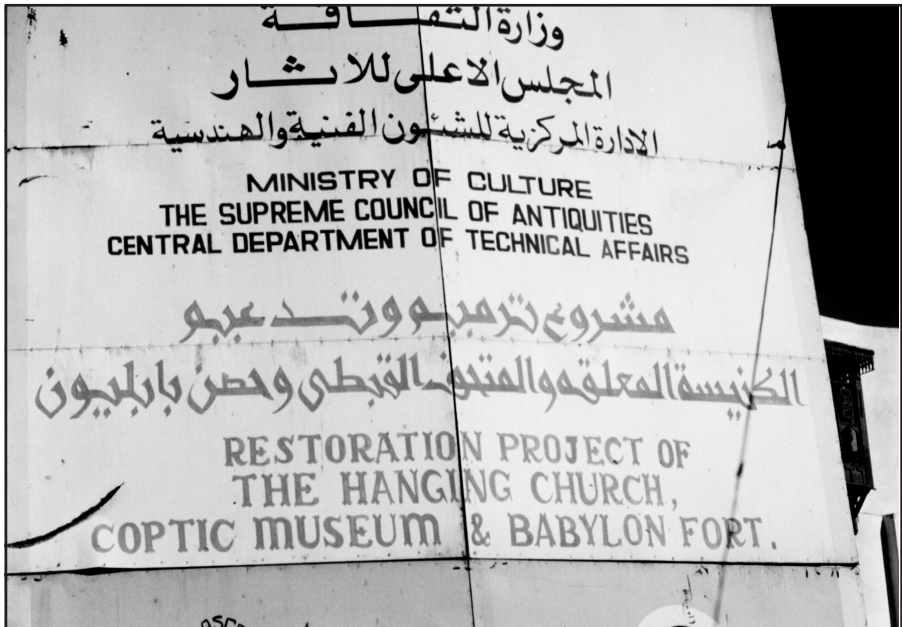 وزارة الثقافة
المجلس الاعلى للاثار
الادارة المركزية للشئون الفنية والهندسية
MINISTRY OF CULTURE
THE SUPREME COUNCIL OF ANTIQUITIES
CENTRAL DEPARTMENT OF TECHNICAL AFFAIRS
مشروع ترميم وتدعيم
الكنيسة المعلقه والمتحف القبطى وحصن بابليون
RESTORATION PROJECT OF
THE HANGING CHURCH,
COPTIC MUSEUM & BABYLON FORT.